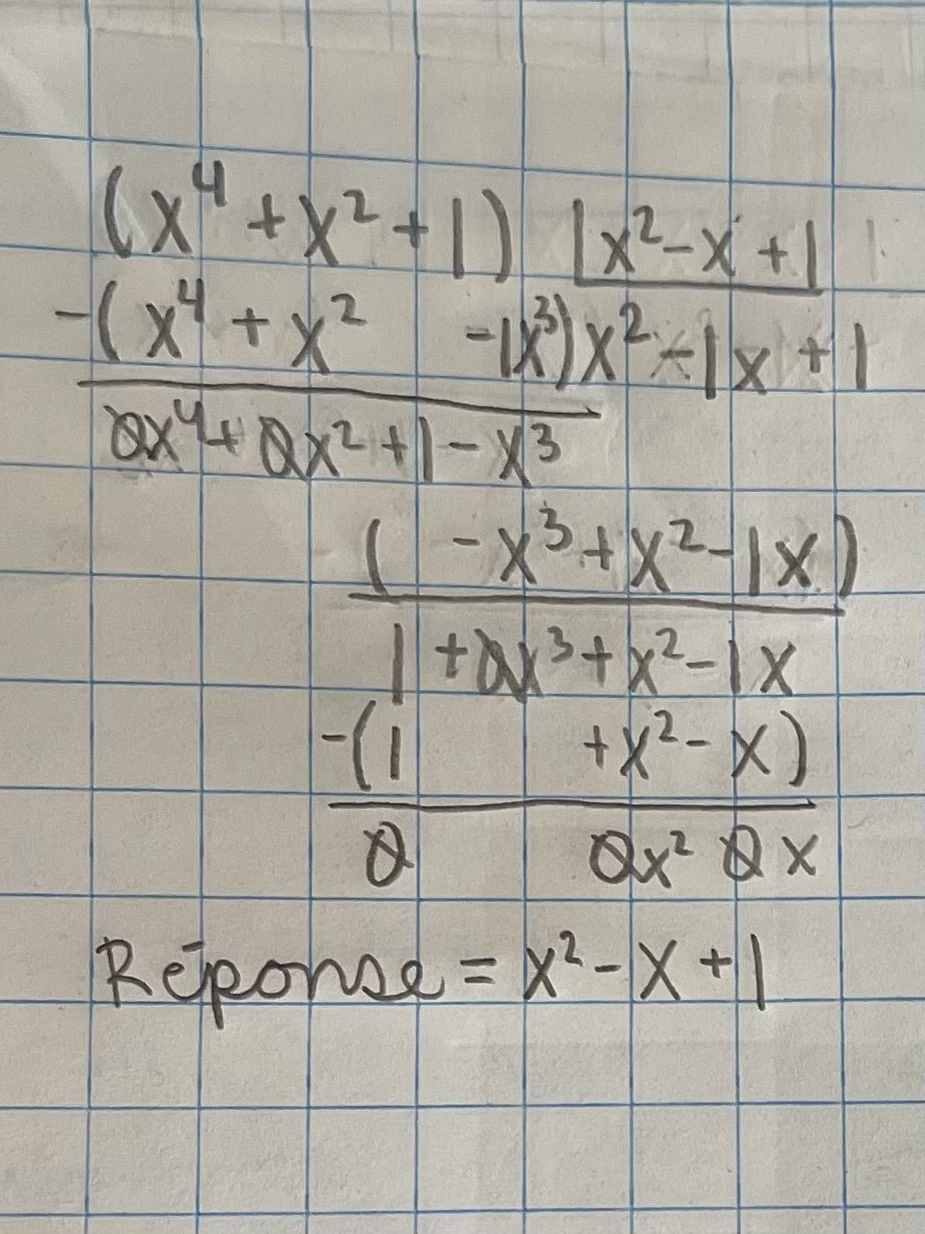 (x⁴ + x² + 1) |x² - x + 1
-(x⁴ + x² -1x³) x² - 1x + 1
0x⁴ + 0x² + 1 - x³
( -x³ + x² - 1x)
1 + 0x³ + x² - 1x
-(1 + x² - x)
0 0x² 0x
Réponse = x² - x + 1